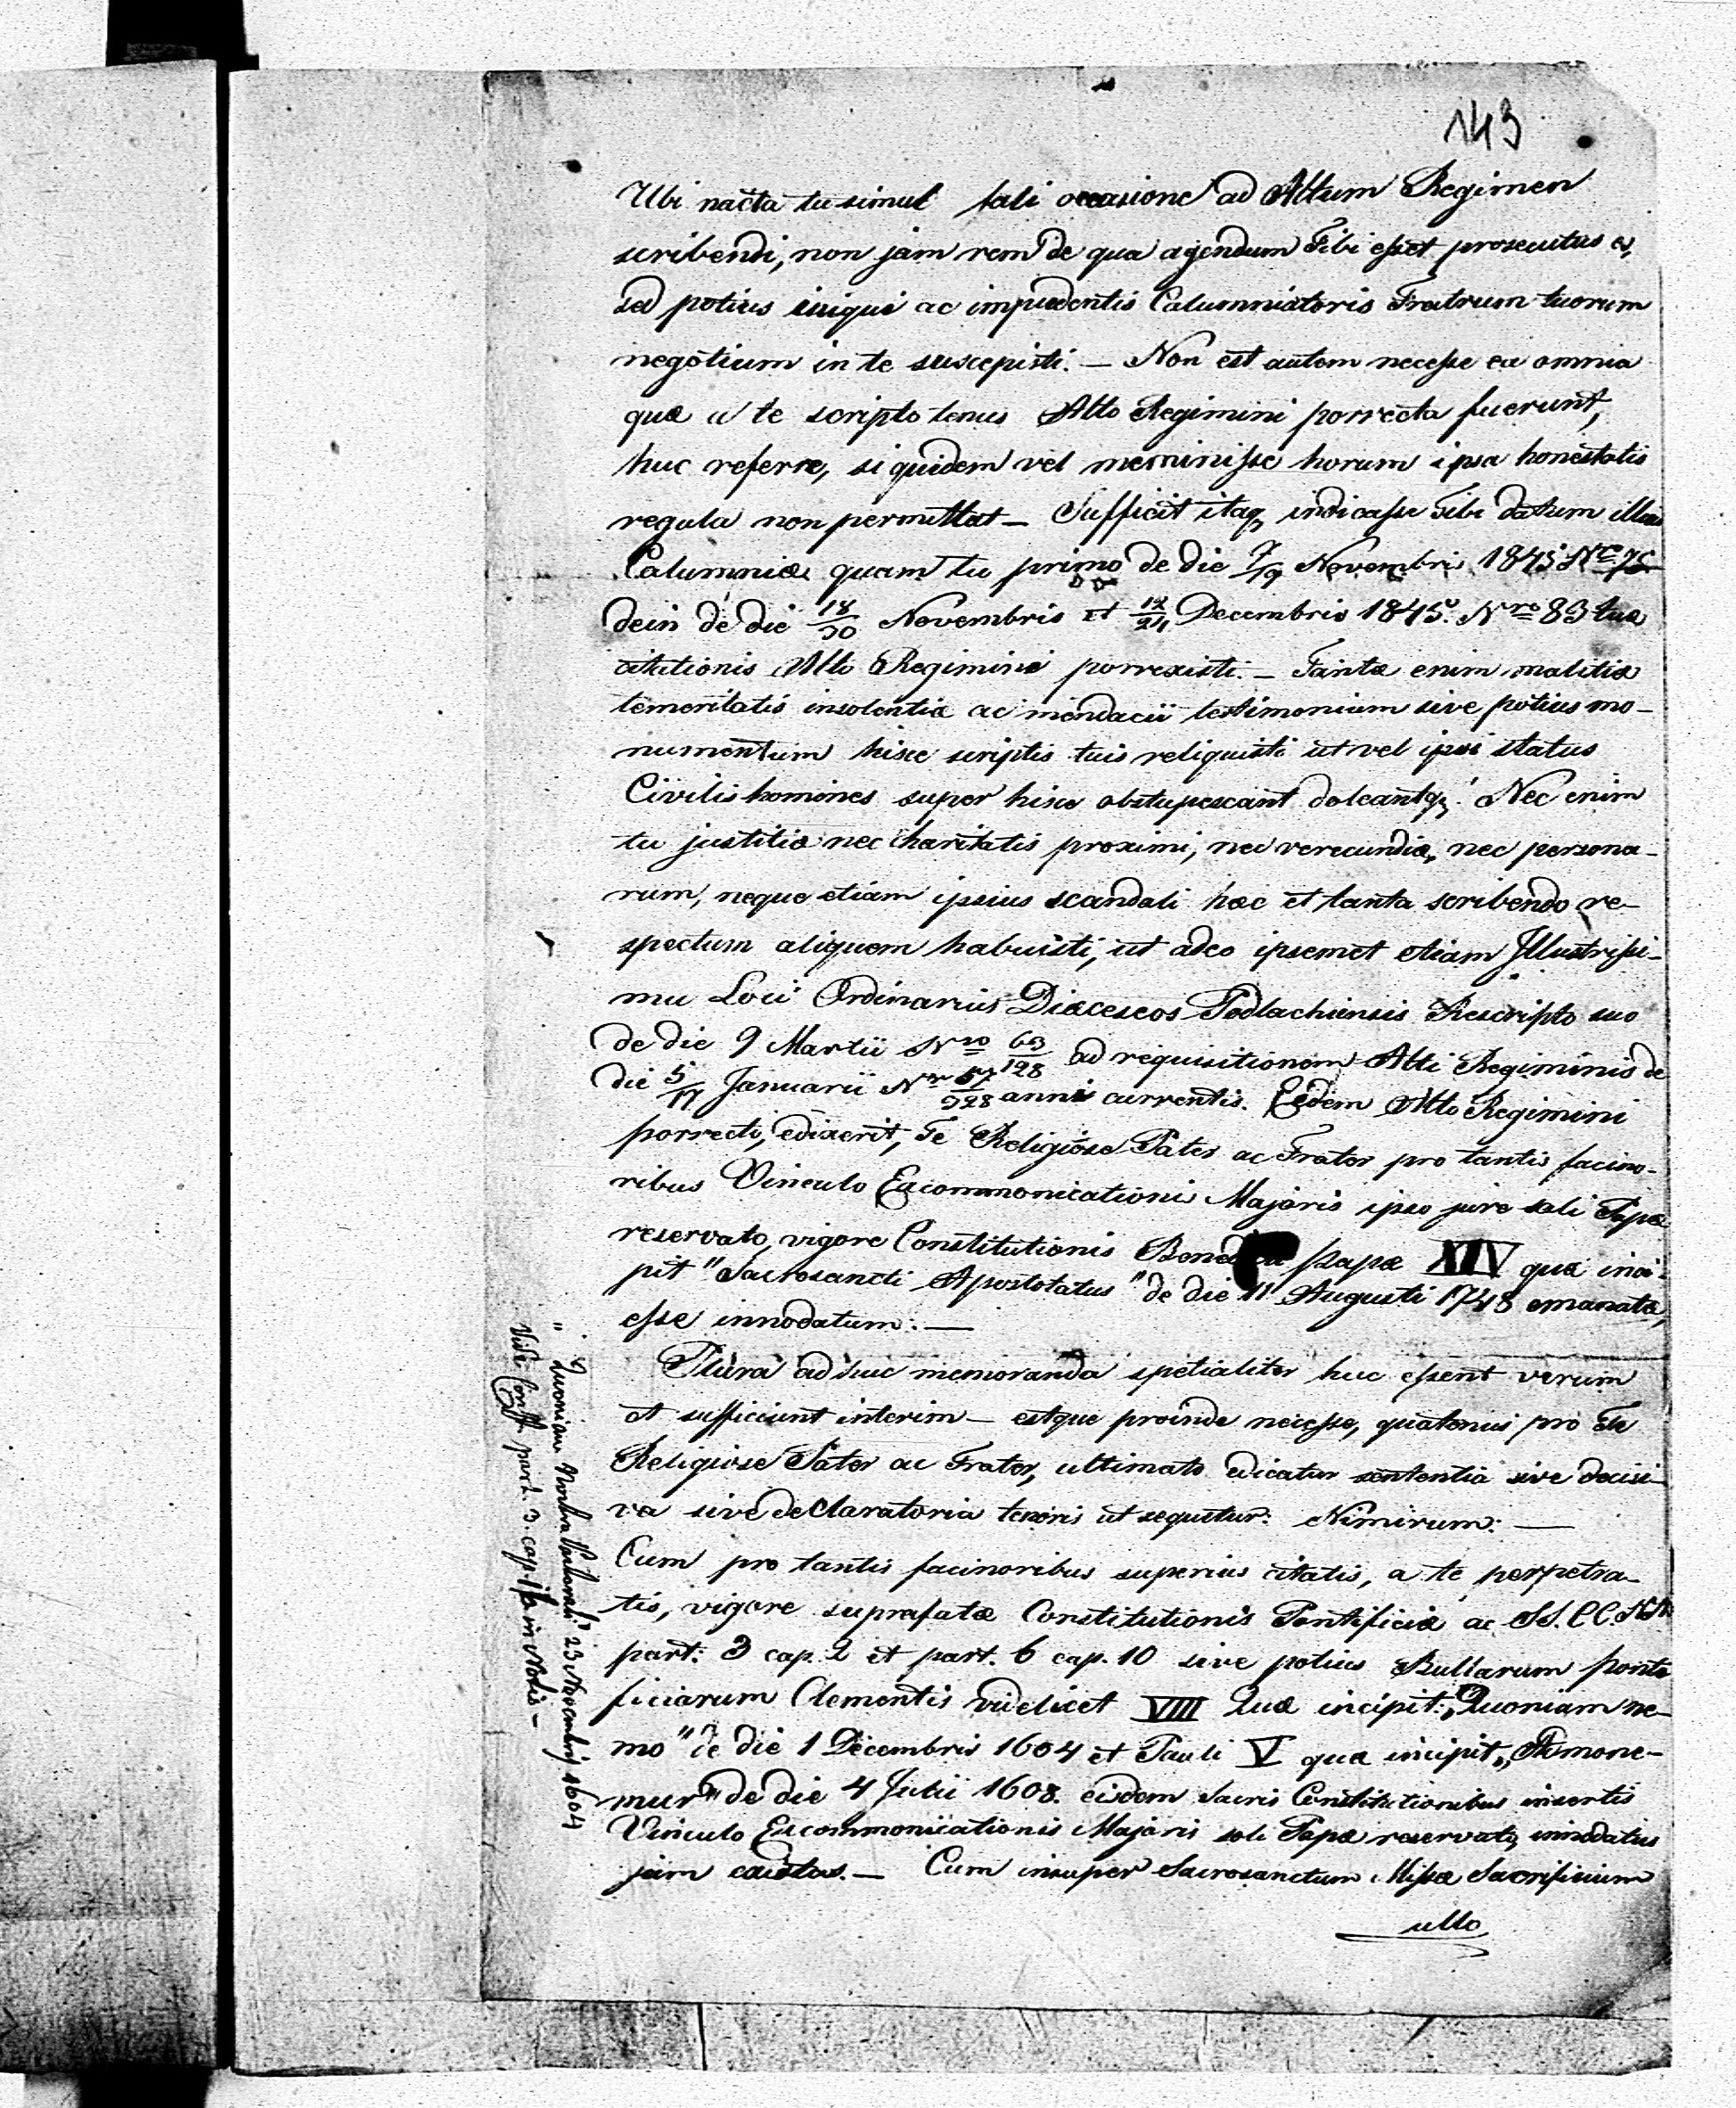 143
Ubi nacta tu simul tali occasione ad Altum Regimen
scribendi, non jam rem de qua agendum Tibi esset prosecutus es,
sed potius iniqui ac impudentis Calumniatoris Fratrum tuorum
negotium in te suscepisti. — Non est autem necesse ea omnia
quæ a te scripto tenus Alto Regimini porrecta fuerunt,
huc referre, siquidem vel meminisse horum ipsa honestatis
regula non permittat — Sufficit itaq, indicasse Tibi datum illius
Calumniæ quam tu primo de die 7/19 Novembris 1845 Nro 75
dein de die 18/30 Novembris et 12/24 Decembris 1845. Nro 83 tuæ
citationis Alto Regimini porrexisti. — Tantæ enim malitiæ
temeritatis insolentiæ ac mendacii testimonium sive potius mo-
numentum hisce scriptis tuis reliquisti ut vel ipsi status
Civilis homines super hisce obstupescant doleantq,! Nec enim
tu justitiæ nec charitatis proximi, nec verecundiæ, nec persona-
rum, neque etiam ipsius scandali hæc et tanta scribendo re-
spectum aliquem habuisti, ut adeo ipsemet etiam Illustrissi-
mu Loci Ordinarius Diæceseos Podlachiensis Rescripto suo
de die 9 Martii Nro 63/128 ad requisitionem Alti Regiminis de
die 5/17 Januarii Nro 57/928 anni currentis. Eidem Alto Regimini
porrecti, edixerit, Te Religiose Pater ac Frater pro tantis facino-
ribus Vinculo Excommonicationi Majoris ipso jure soli Papæ
reservato, vigore Constitutionis Papæ XIV quæ inci-
pit "Sacrosancti Apostolatus" de die 11 Augusti 1748 emanatæ,
esse innodatum: —
Plura adhuc memoranda spetialiter huc essent verum
et sufficiunt interim — estque proinde necesse, quatenus pro Te
Religiose Pater ac Frater, ultimato edicatur sententia sive decisi-
va sive declaratoria tenoris ut sequitur: Nimirum: —
Cum pro tantis facinoribus superius citatis, a te perpetra-
tis, vigore suprafatæ Constitutionis Pontificiæ ac SS. CC. NN
part: 3 cap. 2 et part. 6 cap. 10 sive potius Bullarum ponti
ficiarum Clementis videlicet VIII Quæ incipit: „Quoniam ne-
mo" de die 1 Decembris 1604 et Pauli V quæ incipit „Admone-
mur" de die 4 Julii 1608. eisdem Sacris Constitutionibus insertis
Vinculo Excommonicationis Majoris soli Papæ reservato, innodatus
jam existas. — Cum insuper Sacrosanctum Missæ Sacrificium
ullo
" Quoniam Pastorali" 23 Novembris 1604
Vide Constt part. 3. cap. in Notis —